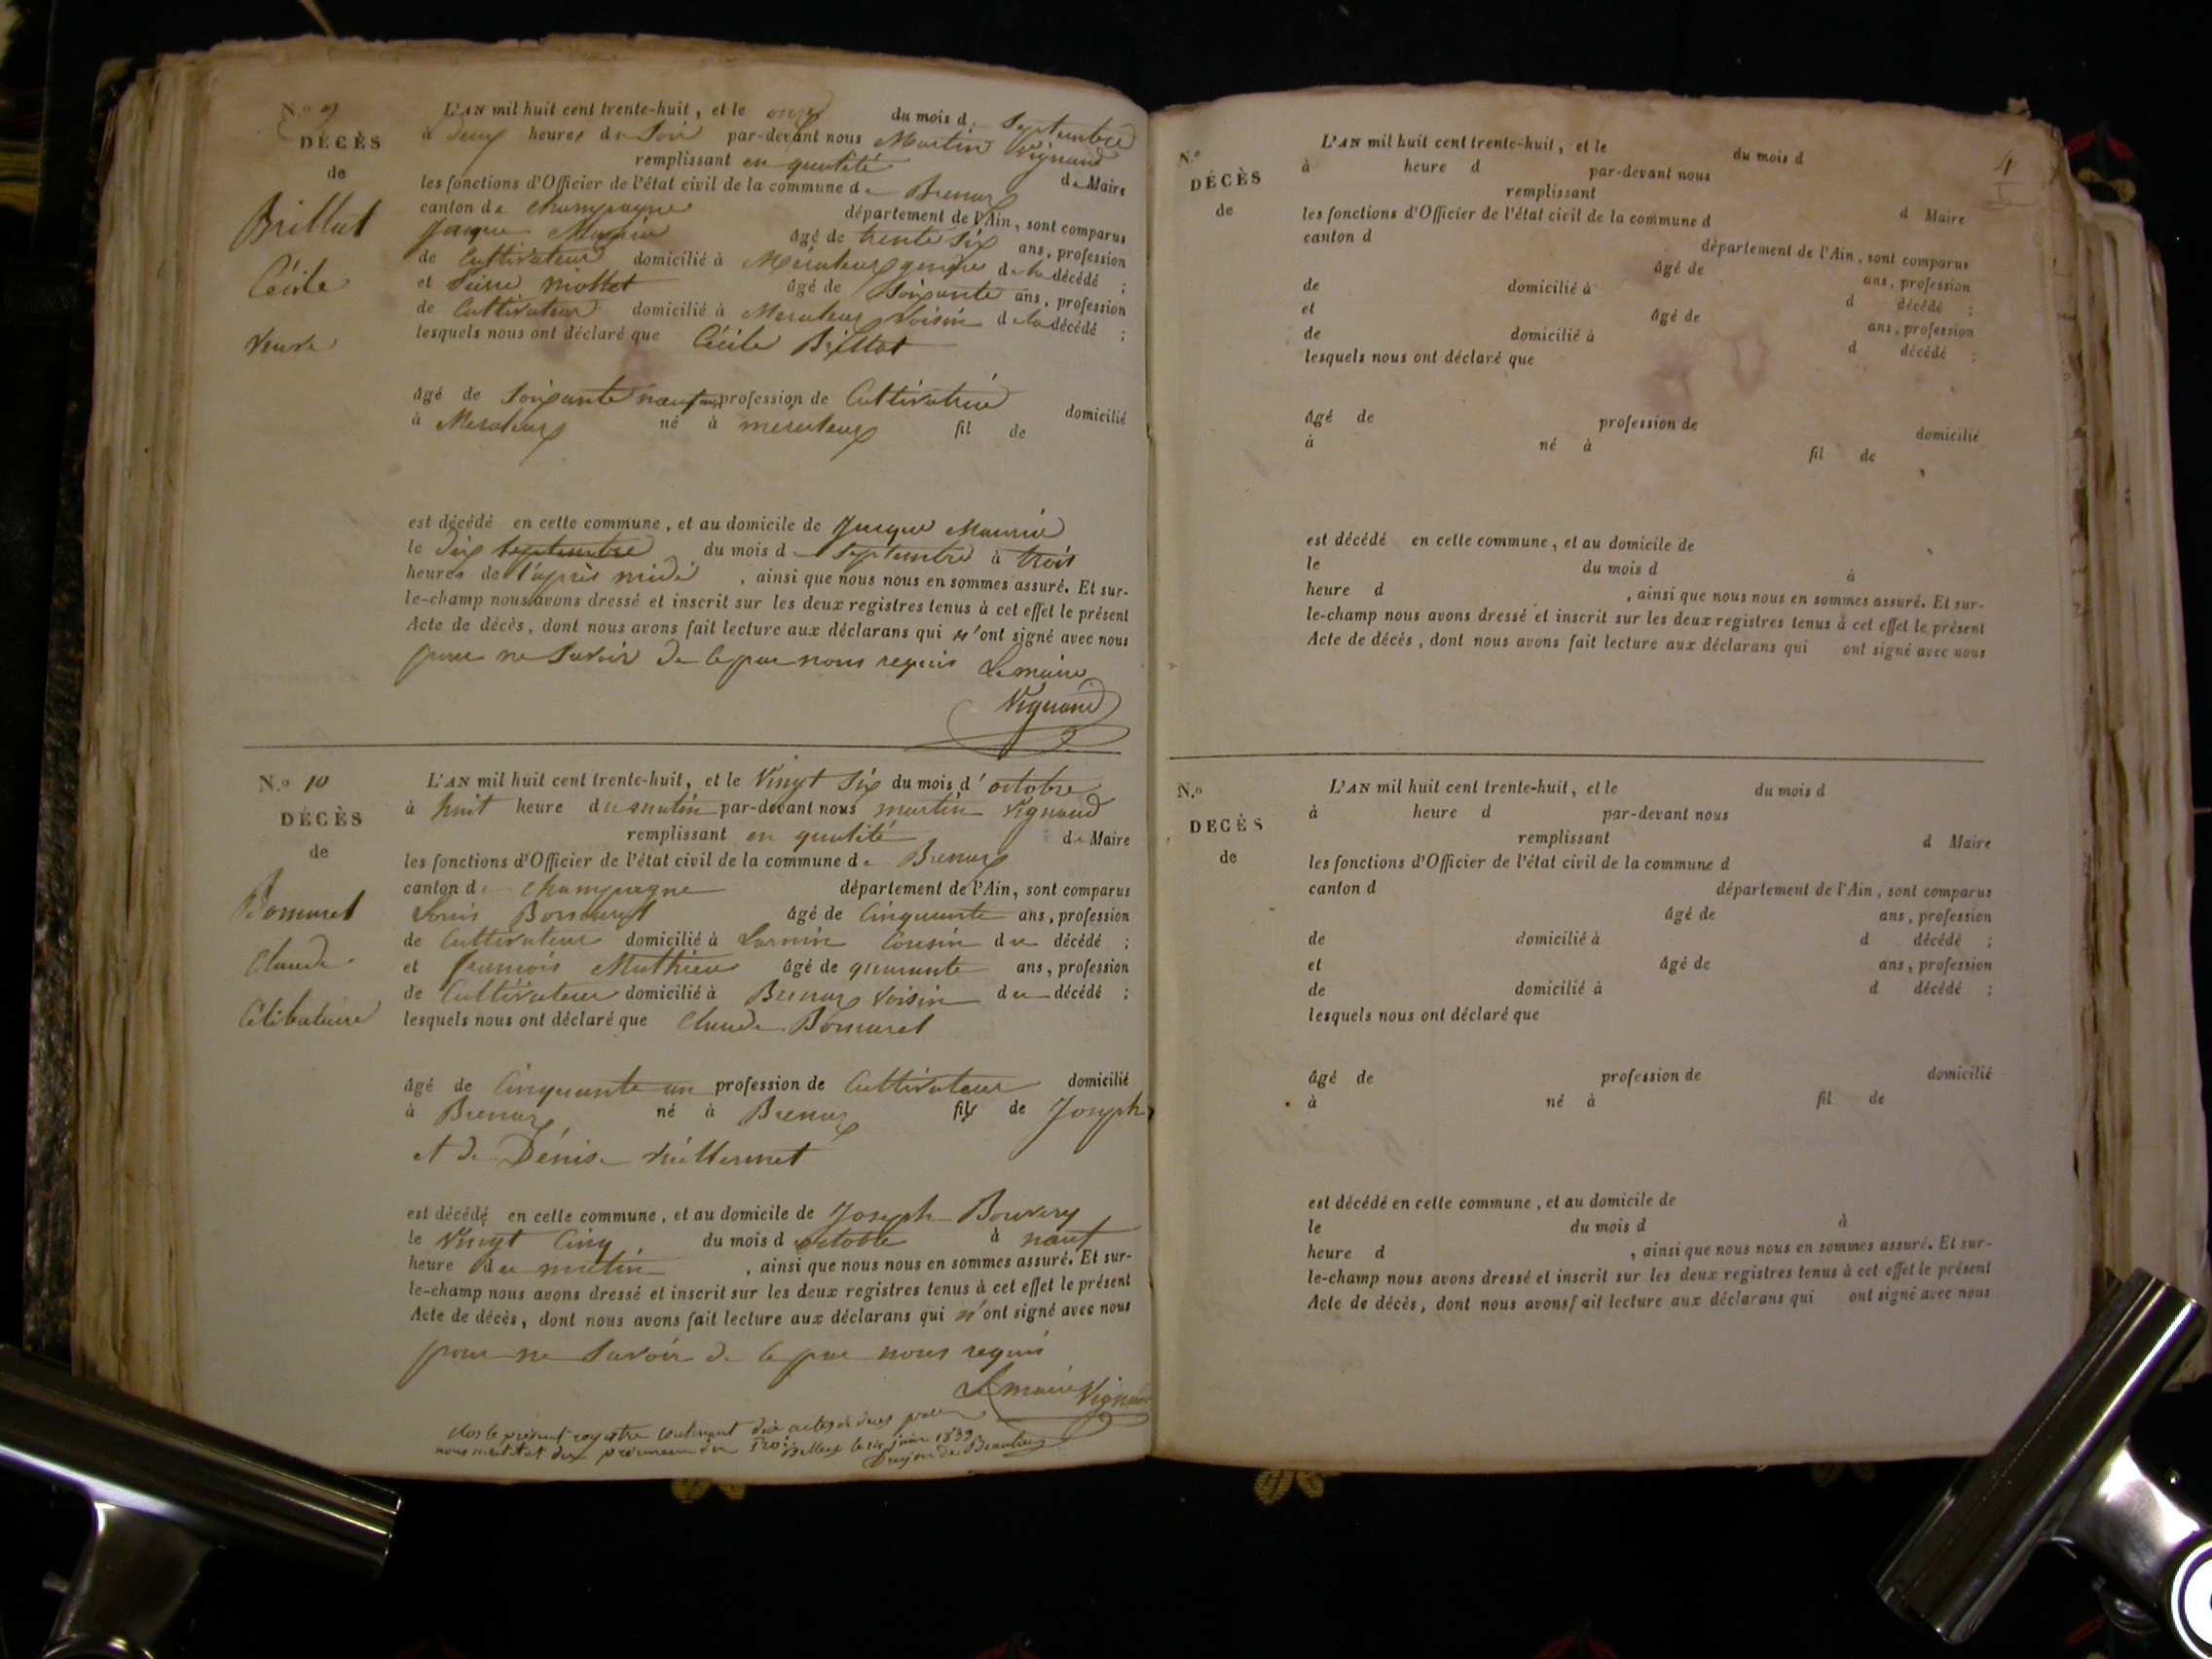 N.o 9
DÉCÈS
de
Brillat
Cécile
veuve
L'AN mil huit cent trente-huit, et le onze du mois de Septembre
à deux heures du Soir par-devant nous Martin Vignand
remplissant en quallité de Maire
les fonctions d'Officier de l'état civil de la commune de Brenaz
canton de champagne département de l'Ain, sont comparus
Jaque Maurin âgé de trente Six ans, profession
de Cultivateur domicilié à Meraleaz gendre de la décédé ;
et Pierre miollet âgé de Soixante ans, profession
de Cultivateur domicilié à Meraleaz Voisin de la décédé ;
lesquels nous ont déclaré que Cécile Brillat
âgé de Soixante nauf ans profession de Cultivatrice domicilié
à Meraleaz né à meraleaz fil de
est décédé en cette commune, et au domicile de Jaque Maurin
le dix septembre du mois de Septembre à trois
heures de l'après midi , ainsi que nous nous en sommes assuré. Et sur-
le-champ nous avons dressé et inscrit sur les deux registres tenus à cet effet le présent
Acte de décès, dont nous avons fait lecture aux déclarans qui n'ont signé avec nous
pour ne Savoir de ce par nous requis Le maire
Vignand
N.o 10
DÉCÈS
de
Bomaret
Claude
Célibataire
L'AN mil huit cent trente-huit, et le Vingt Six du mois d'octobre
à huit heure du matin par-devant nous martin Vignand
remplissant en quallité de Maire
les fonctions d'Officier de l'état civil de la commune de Brenaz
canton de champagne département de l'Ain, sont comparus
Louis Bomaret âgé de Cinquante ans, profession
de Cultivateur domicilié à Lormin Cousin du décédé ;
et françois Mathieu âgé de quarante ans, profession
de Cultivateur domicilié à Brenaz Voisin du décédé ;
lesquels nous ont déclaré que Claude Bomaret
âgé de Cinquante un profession de Cultivateur domicilié
à Brenaz né à Brenaz fils de Joseph
et de Dénise Vuillermet
est décédé en cette commune, et au domicile de Joseph Bouvery
le Vingt Cinq du mois d octobre à nauf
heure du matin , ainsi que nous nous en sommes assuré. Et sur-
le-champ nous avons dressé et inscrit sur les deux registres tenus à cet effet le présent
Acte de décès, dont nous avons fait lecture aux déclarans qui n'ont signé avec nous
pour ne Savoir de ce par nous requis
Le maire Vignand
clos le présent registre contenant dix actes de décès par
nous substitut du procureur du Roi Belley le six juin 1839
Dujon de Beaulieu
4
N.o
DÉCÈS
de
L'AN mil huit cent trente-huit, et le du mois d
à heure d par-devant nous
remplissant d Maire
les fonctions d'Officier de l'état civil de la commune d
canton d département de l'Ain, sont comparus
âgé de ans, profession
de domicilié à d décédé ;
et âgé de ans, profession
de domicilié à d décédé ;
lesquels nous ont déclaré que
âgé de profession de domicilié
à né à fil de
est décédé en cette commune, et au domicile de
le du mois d à
heure d , ainsi que nous nous en sommes assuré. Et sur-
le-champ nous avons dressé et inscrit sur les deux registres tenus à cet effet le présent
Acte de décès, dont nous avons fait lecture aux déclarans qui ont signé avec nous
N.o
DECÈS
de
L'AN mil huit cent trente-huit, et le du mois d
à heure d par-devant nous
remplissant d Maire
les fonctions d'Officier de l'état civil de la commune d
canton d département de l'Ain, sont comparus
âgé de ans, profession
de domicilié à d décédé ;
et âgé de ans, profession
de domicilié à d décédé ;
lesquels nous ont déclaré que
âgé de profession de domicilié
à né à fil de
est décédé en cette commune, et au domicile de
le du mois d à
heure d , ainsi que nous nous en sommes assuré. Et sur-
le-champ nous avons dressé et inscrit sur les deux registres tenus à cet effet le présent
Acte de décès, dont nous avons fait lecture aux déclarans qui ont signé avec nous